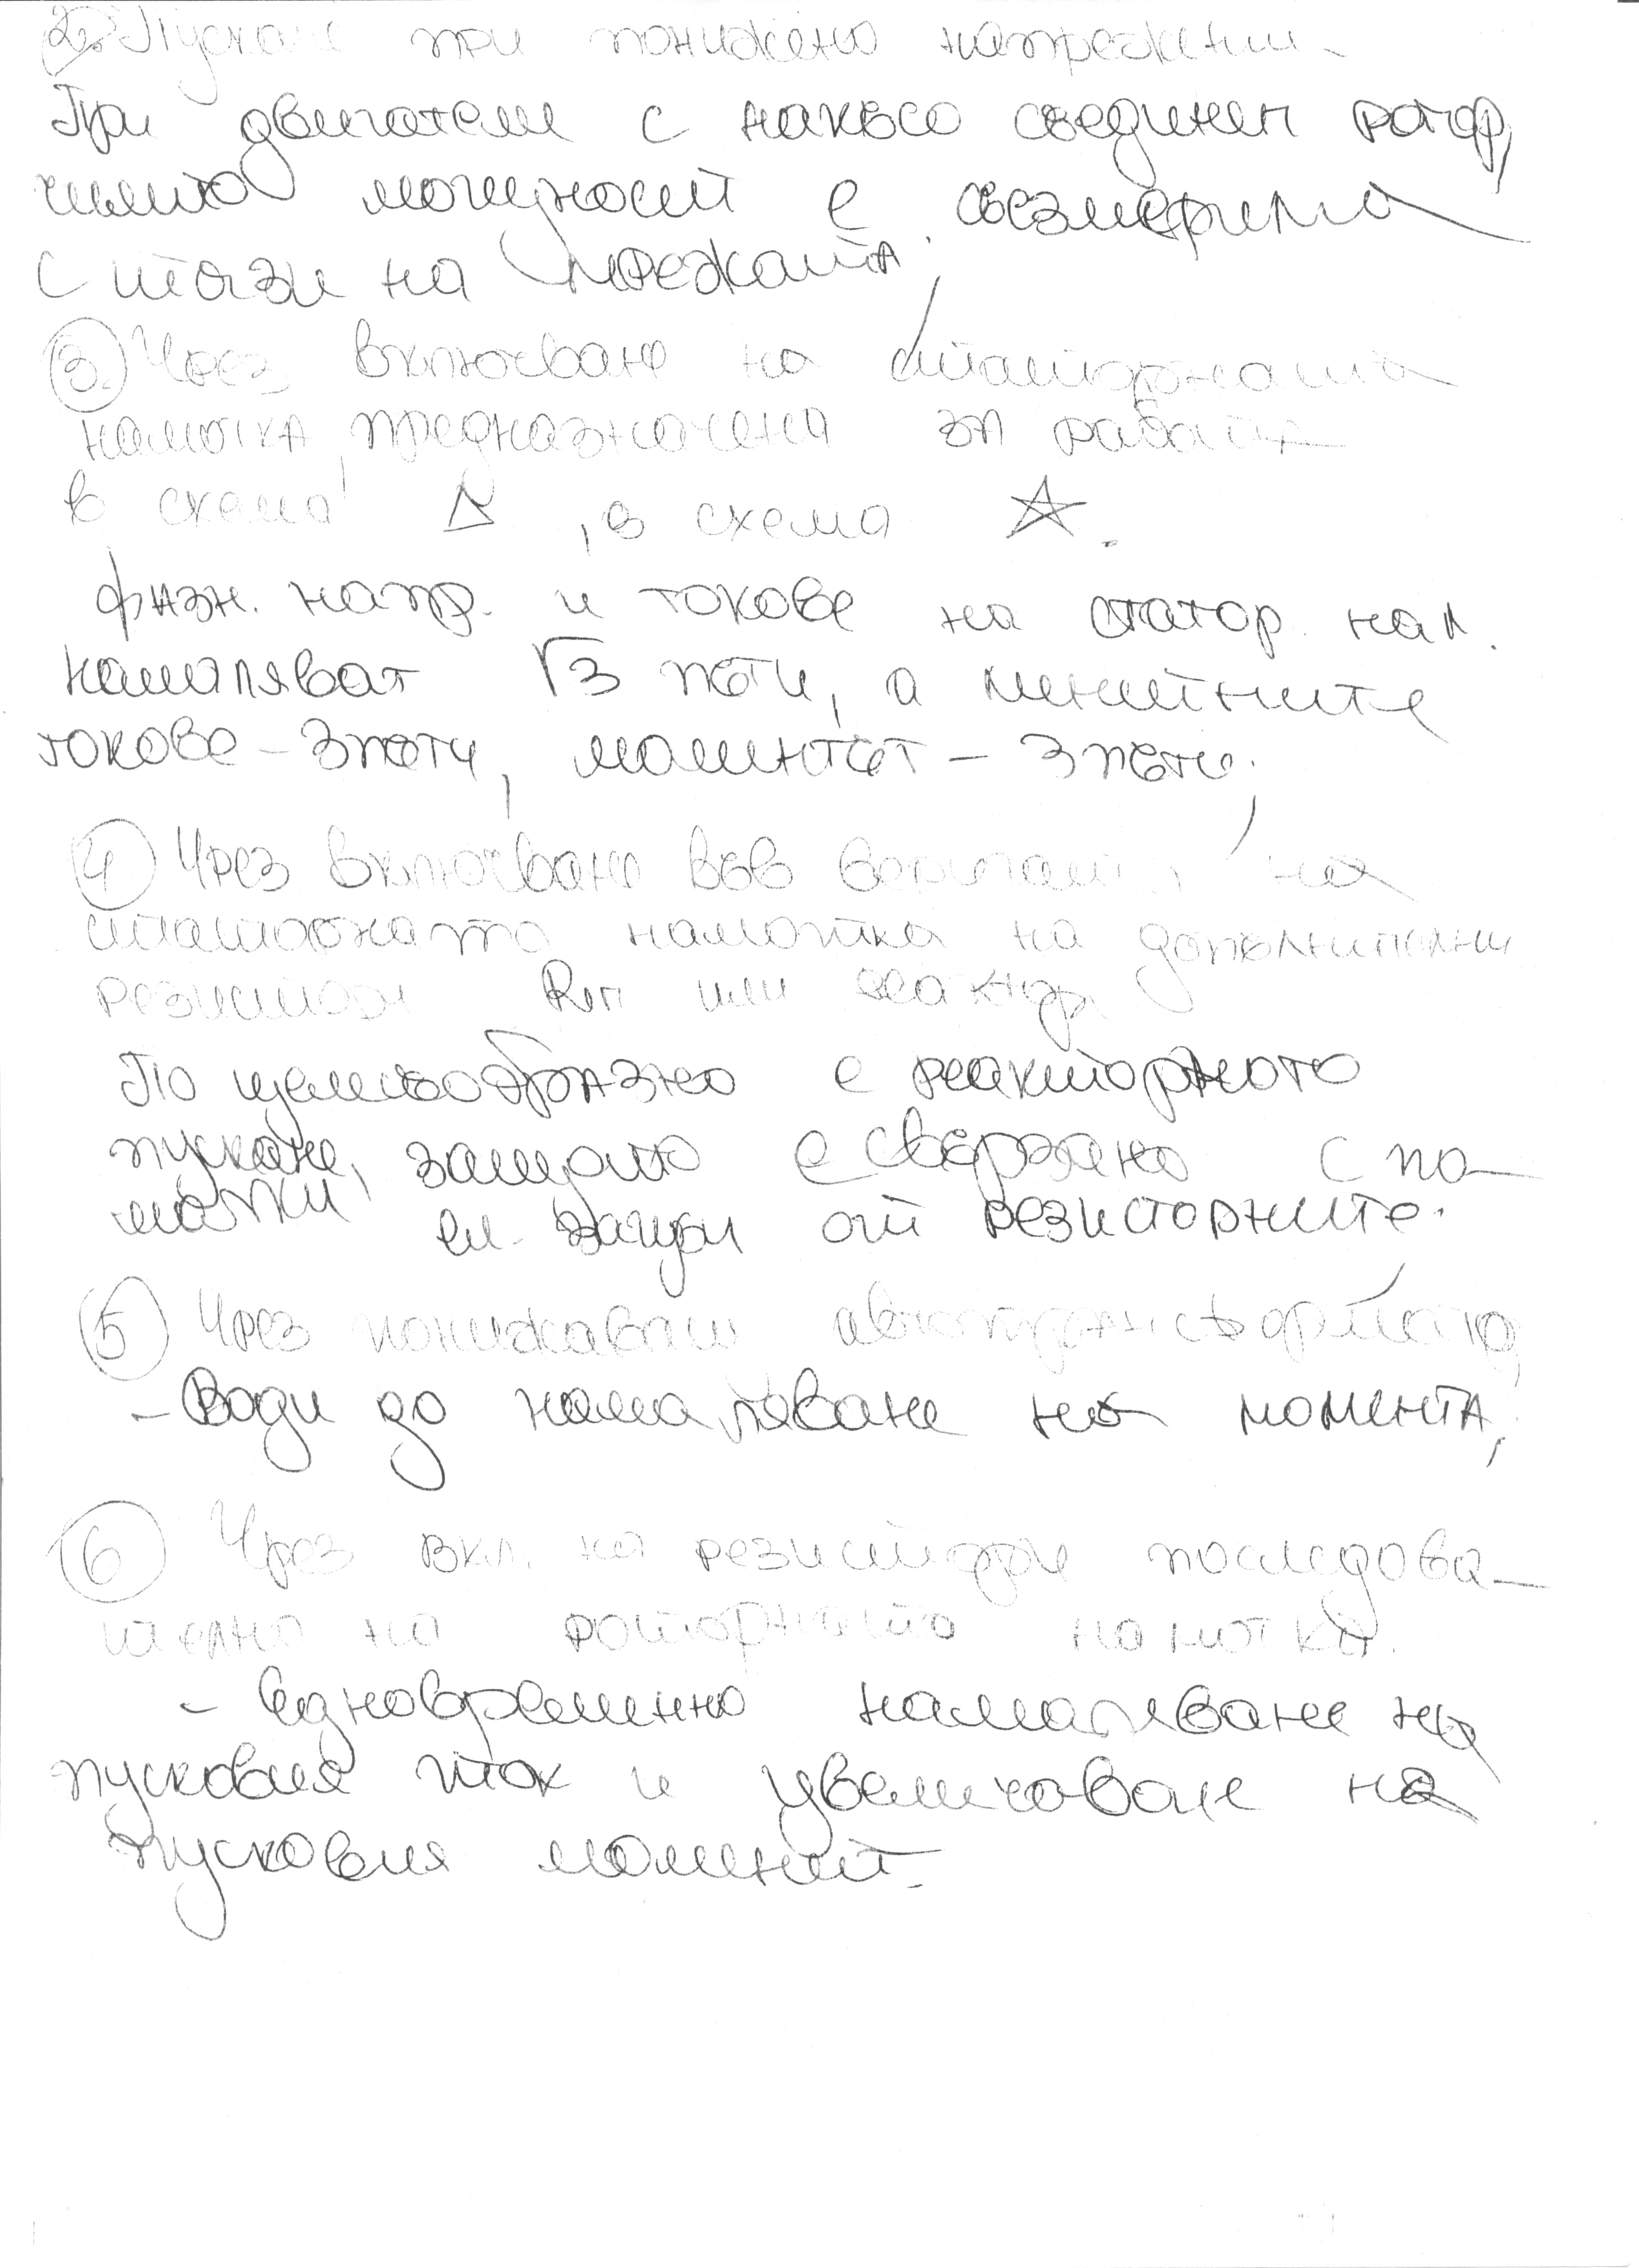 2. Пускане при понижено напрежение
При двигатели с накъсо съединен ротор,
чиято мощност е съизмерима
с тази на мрежата.
3. Чрез включване на статорната
намотка, предназначена за работа
в схема △, в схема ☆.
фазн. напр. и токове на статор. нам.
намаляват √3 пъти, а линейните
токове – 3 пъти, моментът – 3 пъти;
4 Чрез включване във веригата на
статорната намотка на допълнителни
резистори Rп или реактор.
По целесъобразно е реакторното
пускане, защото е свързано с по-
малки ел. загуби от резисторните.
5 Чрез понижаващ автотрансформатор
– Води до намаляване на момента,
6 Чрез вкл. на резистори последова-
телно на роторната намотка.
– Едновременно намаляване на
пусковия ток и увеличаване на
пусковия момент.